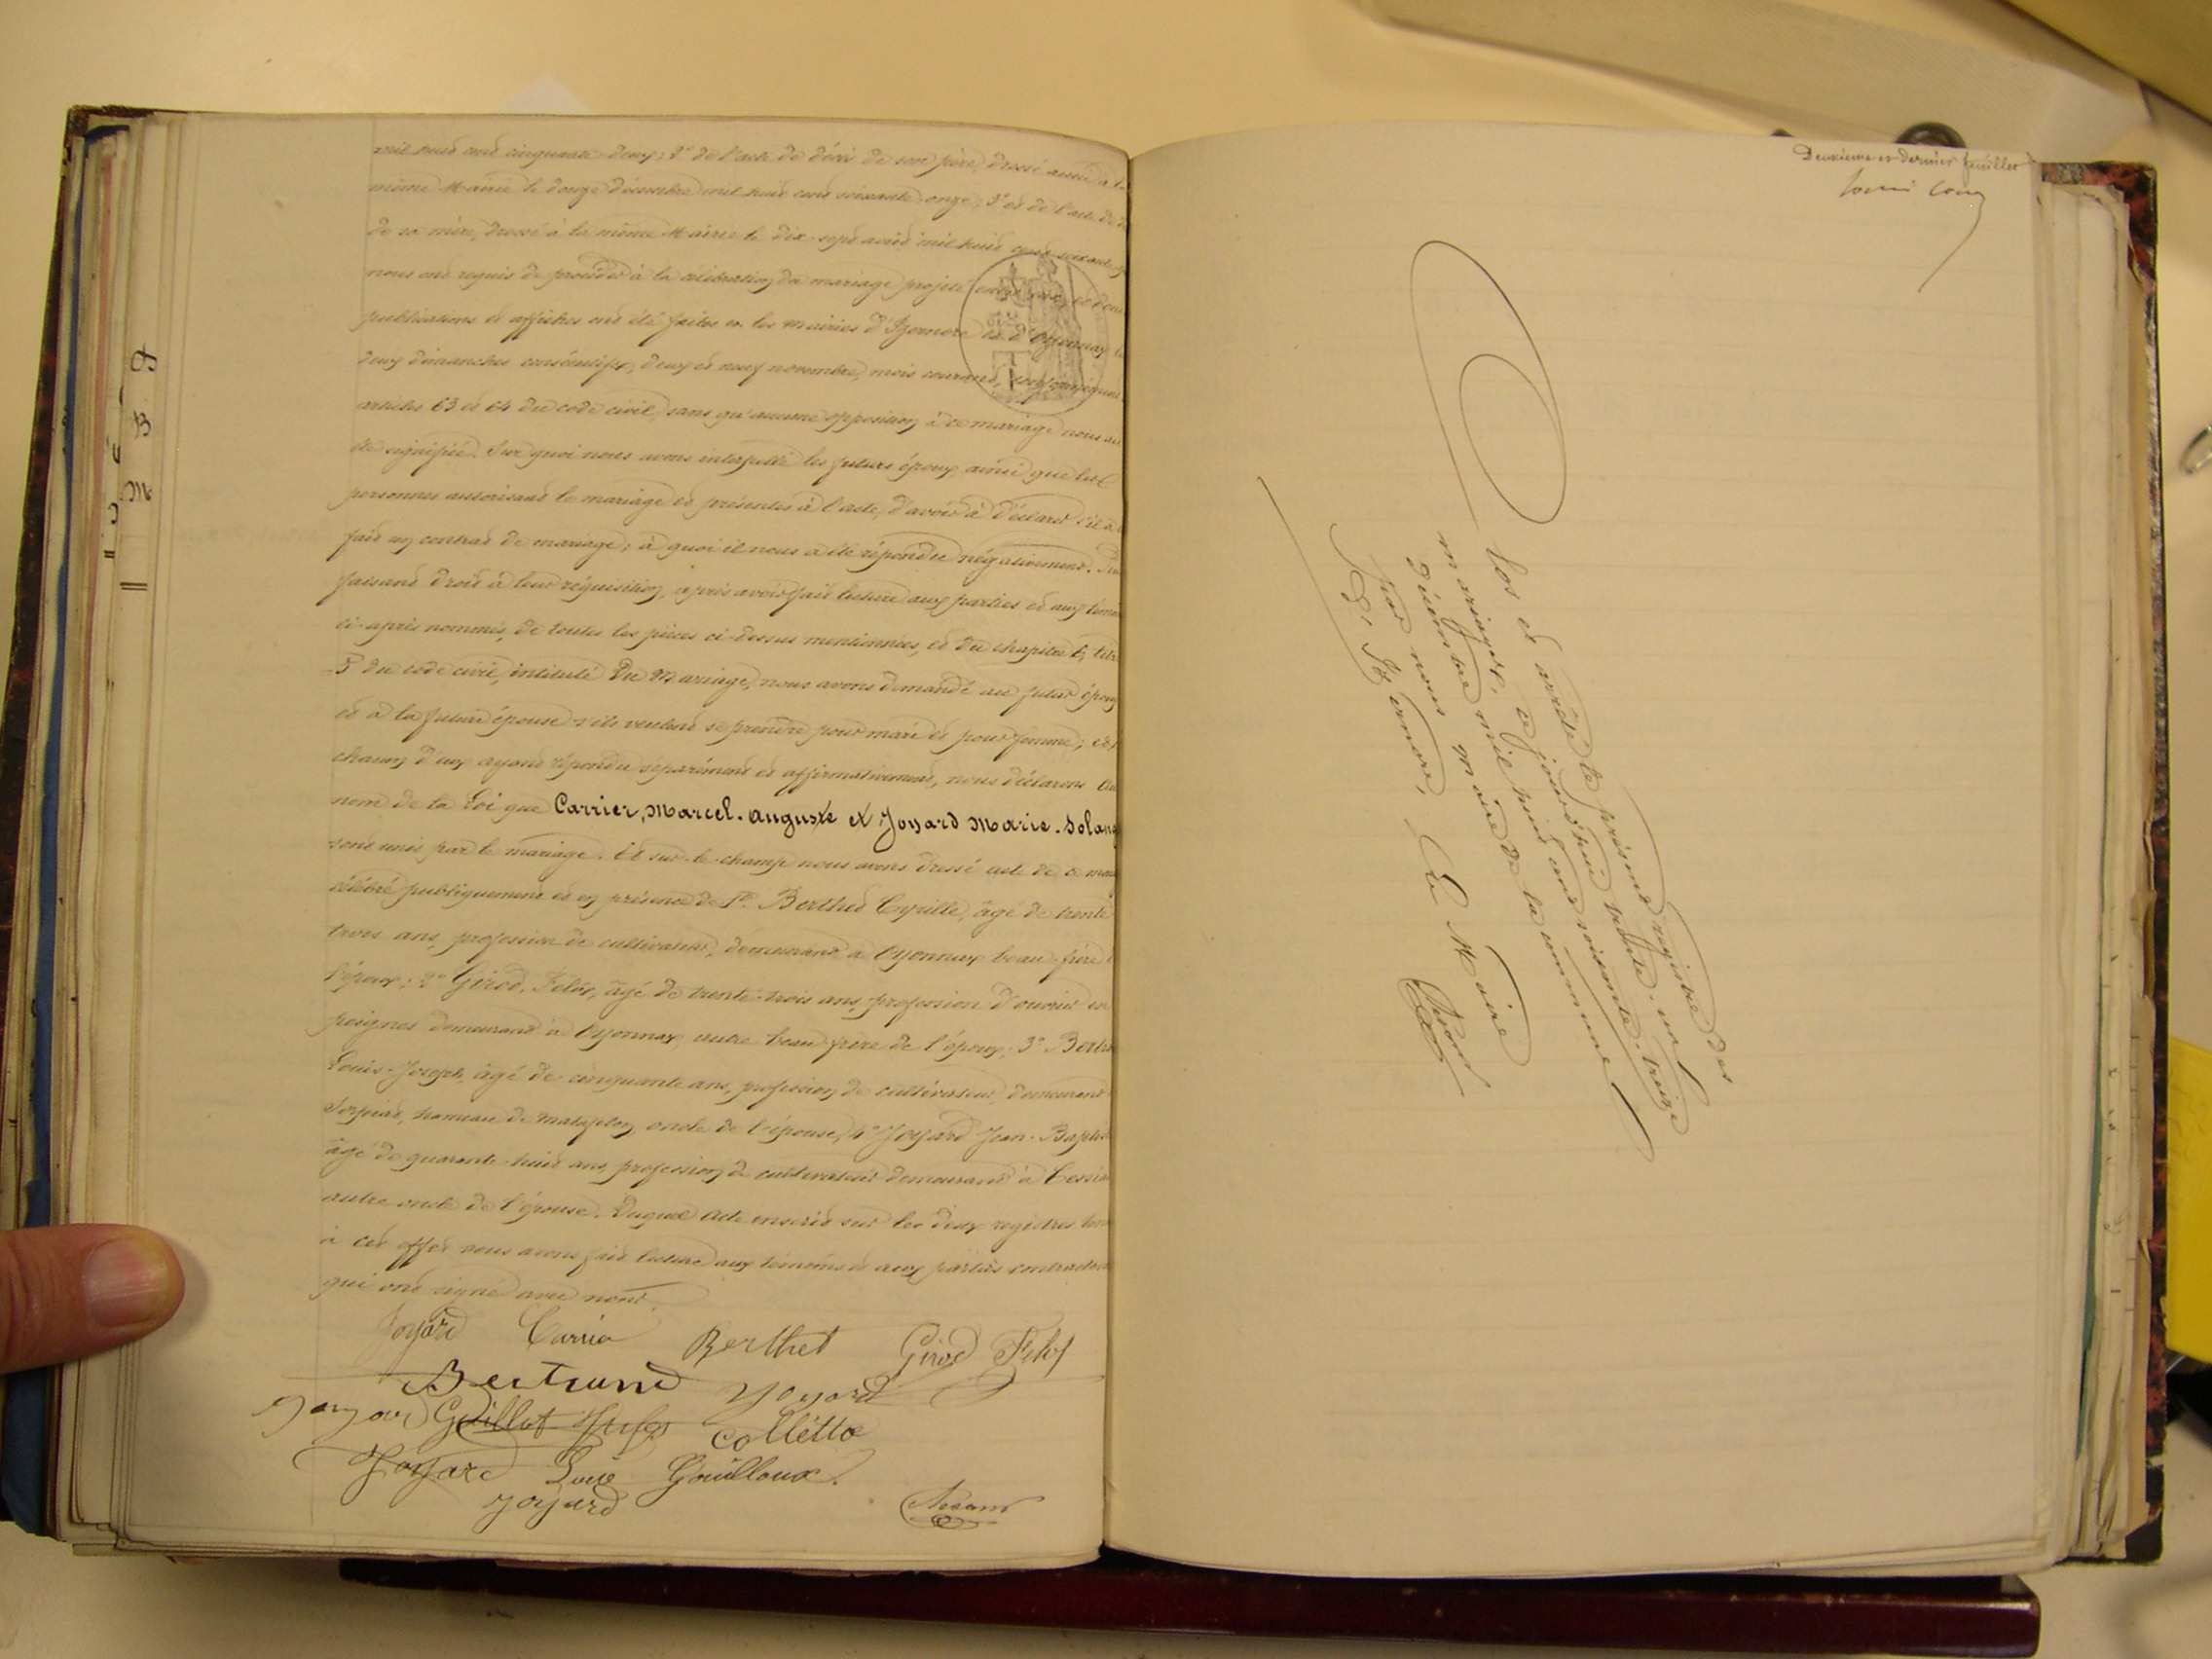 mil huit cent cinquante-deux; 2° de l'acte de décès de son père, dressé aussi à la
même Mairie le douze décembre mil huit cent soixante-onze; 3° et de l'acte de dé
de sa mère, dressé à la même Mairie le dix-sept août mil huit cent soixante
nous ont requis de procéder à la célébration du mariage projeté entre eux, et dont
publications et affiches ont été faites en les mairies d'Izernore et d'Oyonnax les
deux dimanches consécutifs, deux et neuf novembre, mois courant, conformément
articles 63 et 64 du code civil, sans qu'aucune opposition à ce mariage nous ait
été signifiée. Sur quoi nous avons interpellé les futurs époux, ainsi que les
personnes autorisant le mariage et présentes à l'acte, d'avoir à déclarer s'il a
fait un contrat de mariage; à quoi il nous a été répondu négativement.
faisant droit à leur réquisition, après avoir fait lecture aux parties et aux témoins
ci-après nommés, de toutes les pièces ci-dessus mentionnées, et du chapitre 6, titre
5 du code civil, intitulé Du Mariage, nous avons demandé au futur époux
et à la future épouse s'ils veulent se prendre pour mari et pour femme; et
chacun d'eux ayant répondu séparément et affirmativement, nous déclarons Au
nom de la Loi que Carrier, Marcel-Auguste et Joyard Marie-Solang
sont unis par le mariage. Et sur-le-champ nous avons dressé acte de ce maria
célébré publiquement et en présence de 1° Berthet Cyrille, âgé de trente
trois ans, profession de cultivateur, demeurant à Oyonnax beau-frère
l'époux; 2° Girod, Félix, âgé de trente-trois ans, profession d'ouvrier en
peignes demeurant à Oyonnax autre beau-frère de l'époux; 3° Bertra
Louis-Joseph, âgé de cinquante ans, profession de cultivateur, demeurant
hameau de Matafelon, oncle de l'épouse; 4° Joyard Jean-Baptis
âgé de quarante-huit ans, profession de cultivateur demeurant à Cessia
autre oncle de l'épouse. Duquel Acte inscrit sur les deux registres tenu
à cet effet nous avons fait lecture aux témoins et aux parties contractant
qui ont signé avec nous.
Joyard Carrier Berthet Girod Félix
Bertrand Joyard
Joyard Guillot Collétta
Joyard Louis Gouilloux.
Joyard
Deuxième et dernier feuillet
Clos et arrêté le présent registre des
mariages, ce jourd'hui trente-un
décembre mil huit cent soixante-treize
par nous Maire de la commune
d'Izernore,
Le Maire